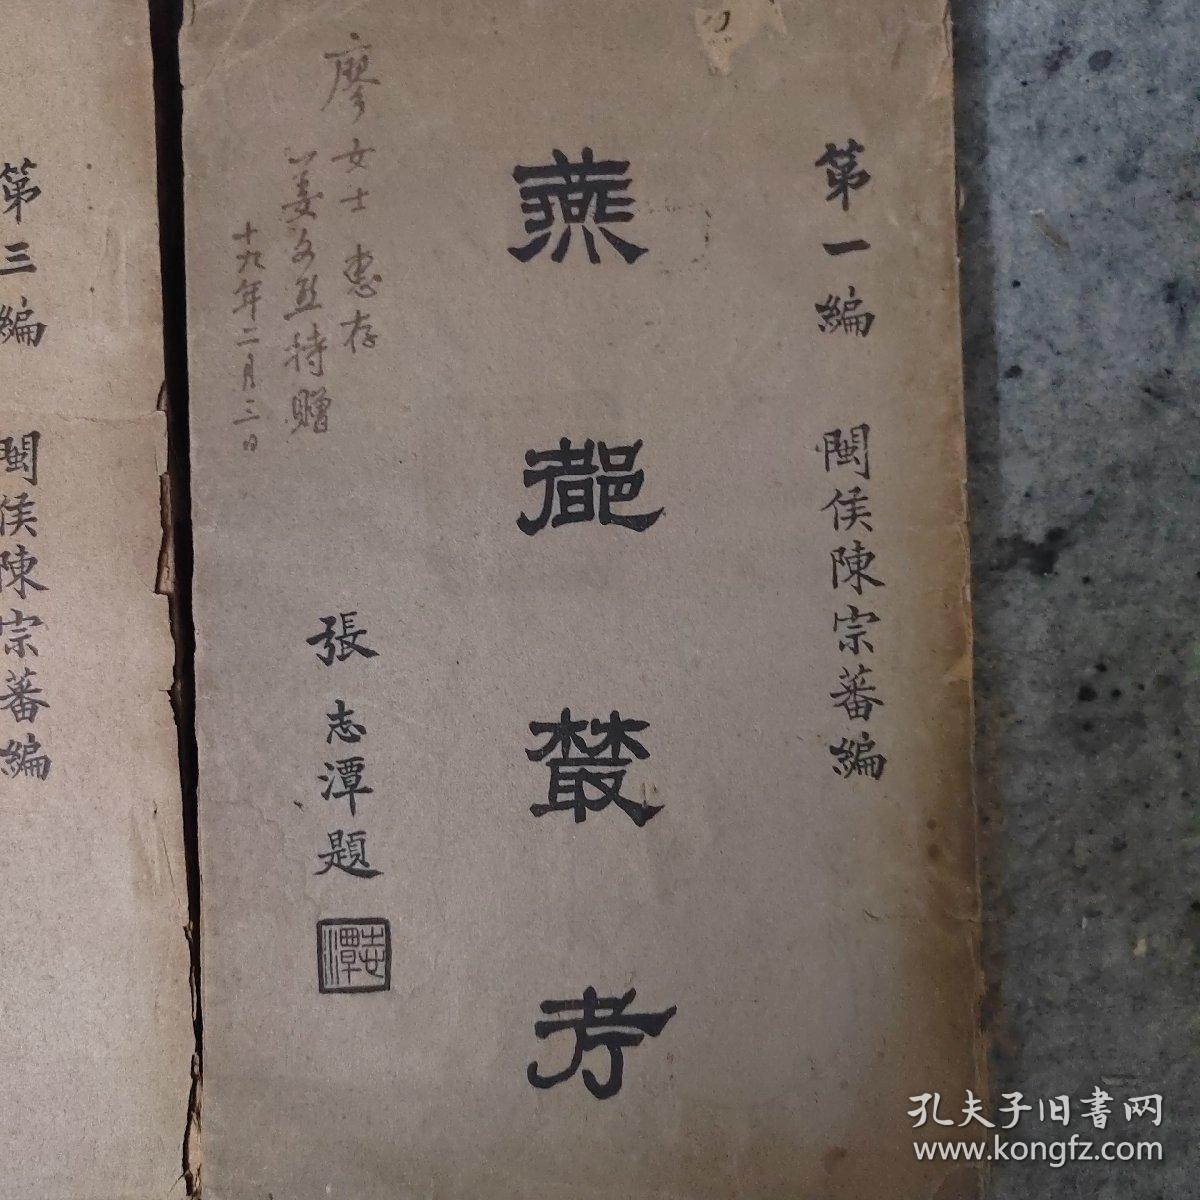 第一編 閩侯陳宗蕃編
燕都叢考
張志潭題
志潭
廖女士惠存
姜文 特贈
十九年二月三日
第三編 閩侯陳宗蕃編
孔夫子旧書网
www.kongfz.com